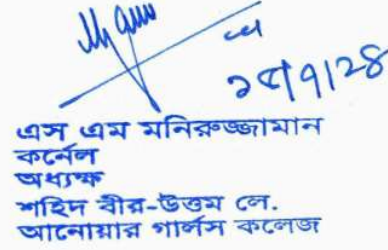 ২৫/৭/২৪
এস এম মনিরুজ্জামান
কর্নেল
অধ্যক্ষ
শহিদ বীর-উত্তম লে.
আনোয়ার গার্লস কলেজ